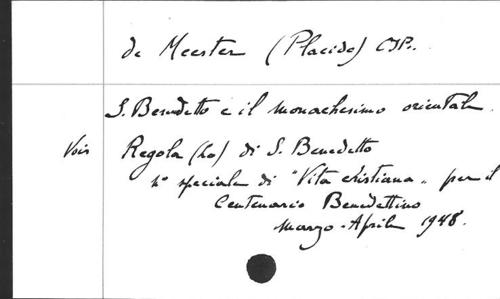 de Meester (Placido)
S. Benedetto e il monachesimo orientale.
Voir Regola (La) di S. Benedetto
n° speciale di "Vita cristiana" per il
Centenario Benedettino
Marzo-Aprile 1948.